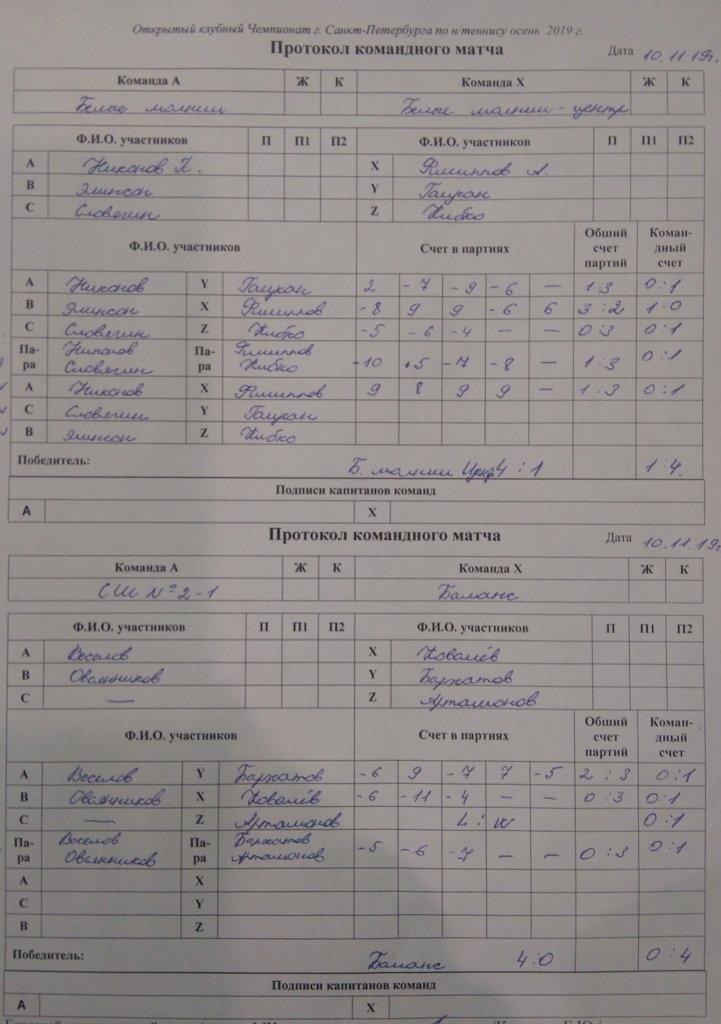 Открытый клубный Чемпионат г. Санкт-Петербурга по н/теннису осень 2019 г.
Протокол командного матча Дата 10.11.19г.
Команда А Ж К Команда Х Ж К
Белые молнии Белые молнии - центр
Ф.И.О. участников П П1 П2 Ф.И.О. участников П П1 П2
А Никонов П. X Филиппов А.
В Элинсон Y Гацкан
С Словягин Z Кибко
Ф.И.О. участников Счет в партиях Общий счет партий Коман-дный счет
А Никонов Y Гацкан 2 -7 -9 -6 — 1:3 0:1
В Элинсон X Филиппов -8 9 9 -6 6 3:2 1:0
С Словягин Z Кибко -5 -6 -4 — — 0:3 0:1
Па-ра Никонов Словягин Па-ра Филиппов Кибко -10 +5 -7 -8 — 1:3 0:1
А Никонов X Филиппов 9 8 9 9 — 1:3 0:1
С Словягин Y Гацкан
В Элинсон Z Кибко
Победитель: Б. молнии 4:1 1:4
Подписи капитанов команд
А X
Протокол командного матча Дата 10.11.19г
Команда А Ж К Команда Х Ж К
СШ №2-1 Баланс
Ф.И.О. участников П П1 П2 Ф.И.О. участников П П1 П2
А Веселов X Ковалёв
В Овчинников Y Бархатов
С — Z Артамонов
Ф.И.О. участников Счет в партиях Общий счет партий Коман-дный счет
А Веселов Y Бархатов -6 9 -7 7 -5 2:3 0:1
В Овчинников X Ковалёв -6 -11 -4 — — 0:3 0:1
С — Z Артамонов L:W 0:1
Па-ра Веселов Овчинников Па-ра Бархатов Артамонов -5 -6 -7 — — 0:3 0:1
А X
С Y
В Z
Победитель: Баланс 4:0 0:4
Подписи капитанов команд
А X